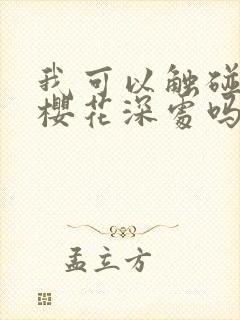 我可以触碰
樱花深处吗
孟立方